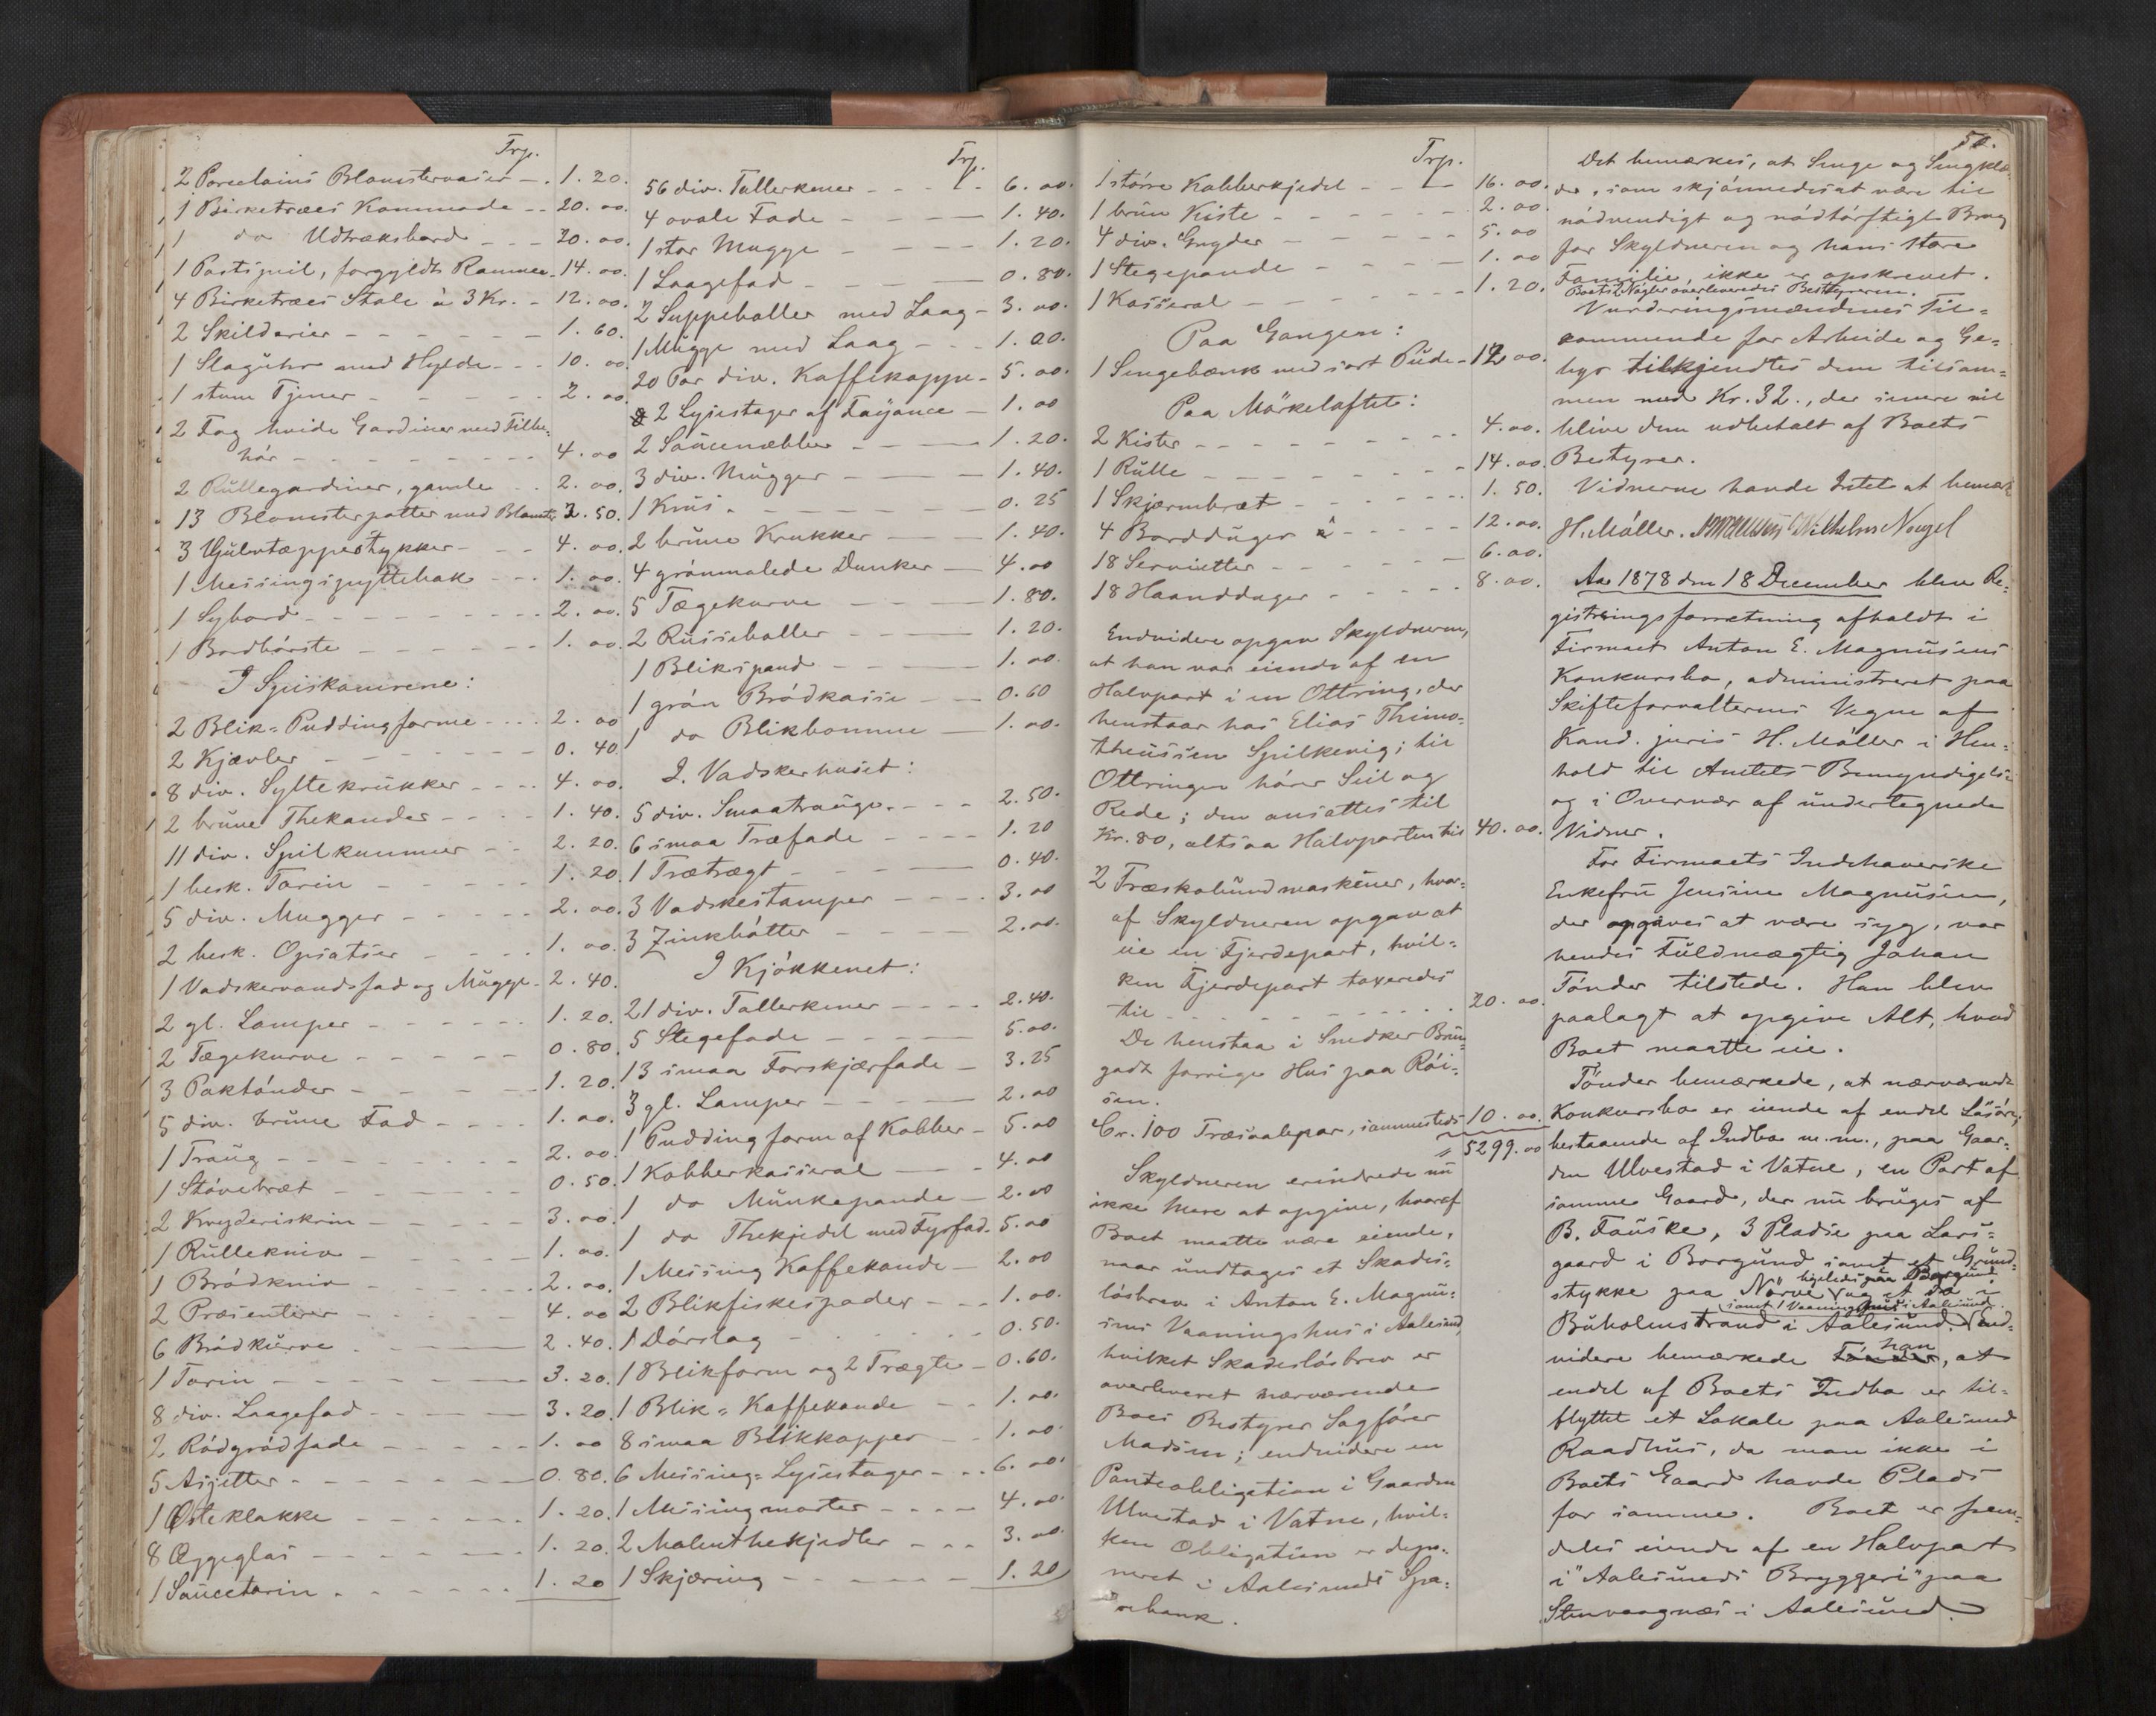 Trp.
2 Porcelains Blomstervaser - . 1. 20.
1 Birketræes Kommode - - 20. 00.
1 do Udtræksbord - - - 20. 00.
1 Postspeil, forgyldt Ramme - 14. 00.
4 Birketræes Stole à 3 Kr. - 12. 00.
2 Skilderier - - - - 1. 60.
1 Slaguhr med Hylde - - - 10. 00
1 stum Tjener - - - - 2. 00.
2 Fag hvide Gardiner med Tilbe=
hör - - - - - - 4. 00
2 Rullegardiner, gamle - - 2. 00.
13 Blomsterpotter med Blomster 3. 50.
3 Gulvtæppestykker - - - 4. 00.
1 Messingspyttebak - - - 1. 00.
1 Sybord - - - - - - 2. 00.
1 Bordbörste - - - - - 1. 00
I Spiskamrene:
2 Blik= Puddingforme - - - 2. 00
2 Kjævler - - - - 0. 40.
8 div. Syltekrukker - - - 4. 00.
2 brune Thekander - - - 1. 40.
11 div. Spilkummer - - 2. 20.
1 besk. Tarin - - - - 1. 20.
5 div. Mugger - - - - 2. 00.
2 besk. Opsatser - - - 1. 00.
1 Vadskervandsfad og Mugge - 2. 40.
2 gl. Lamper - - - - 1. 20.
2 Tægekurve - - - - 0. 80.
3 Paktönder - - - - 1. 20.
5 div. brune Fad - - - 1. 00.
1 Traug - - - - - 2. 00.
1 Stövebræt - - - - 0. 50.
2 Kryderiskrin - - - - 3. 00.
1 Rullekniv - - - - 1. 00.
1 Brödkniv - - - - 2. 00.
2 Præsenterer - - - - 4. 00
6 Brödkurve - - - - 2. 40.
1 Tarin - - - - - 3. 20.
8 div. Laagefad - - - 3. 20.
2 Rödgrödfade - - - - 1. 00
5 Asjetter - - - - - 0. 80.
1 Osteklokke - - - - 1. 20.
8 Æggeglas - - - - 1. 20.
1 Saucetarin - - - - 1. 20
Trp.
56 div. Tallerkener - - - - 6. 00.
4 ovale Fade - - - 1. 40.
1 stor Mugge - - - 1. 20.
1 Laagefad - - - 0. 80.
2 Suppeboller med Laag - 3. 00.
1 Mugge med Laag - - - 1. 00.
20 Par div. Kaffekoppe - 5. 00.
2 Lysestager af Fayance - 1. 00
2 Saucenæbber - - - 1. 20.
3 div. Mugger - - - 1. 40.
1 Krus - - - - - 0. 25
2 brune Krukker - - - 1. 40.
4 grönmalede Dunker - 4. 00
5 Tægekurve - - - 1. 80.
2 Russeboller - - - 1. 20.
1 Blikspand - - - 1. 00.
1 grön Brödkasse - - 0. 60
1 do Blikbomme - 1. 00.
I. Vadskerhuset:
5 div. Smaatrauge - - - 2. 50.
6 smaa Træfade - - - 1. 20
1 Trætragt - - - 0. 40.
3 Vadskestamper - - - 3. 00
3 Zinkbötter - - - 2. 00.
I Kjökkenet:
21 div. Tallerkener - - - 2. 40.
5 Stegefade - - - 5. 00.
13 smaa Forskjærfade - 3. 25
3 gl. Lamper - - - 2. 00
1 Puddingform af Kobber - 5. 00
1 Kobberkasserol - - 4. 00
1 do Munkepande - 2. 00
1 do Thekjedel med Fyrfad - 5. 00
1 Messing Kaffekande - 2. 00
2 Blikfiskespader - - - 1. 00.
1 Dörslag - - - - 0. 50.
1 Blikform og 2 Trægte - 0. 60.
1 Blik= Kaffekande - - 1. 00.
8 smaa Blikkopper - - 1. 00.
6 Messing= Lysestager - - 6. 00.
1 Messingmorter - - - 4. 00.
2 Malmthekjedler - - - 3. 00
1 Skjæring - - - - 1. 20
Trp.
1 större Kobberkjedel - - - 16. 00.
1 brun Kiste - - - - 2. 00.
4 div. Gryder - - - - 5. 00
1 Stegepande - - - - 1. 00
1 Kasserol - - - - 1. 20.
Paa Gangen:
1 Sengebænk med sort Pude - 12. 00.
Paa Mörkeloftet:
2 Kister - - - - - 4. 00.
1 Rulle - - - - - 14. 00.
1 Skjærmbræt - - - - 1. 50.
4 Bordduger - - - - 12. 00.
18 Servietter - - - - 6. 00.
18 Haandduger - - - - 8. 00.
Endvidere opgav Skyldneren,
at han var eiende af en
Halvpart i en Ottring, der
henstaar hos Elias Thimo=
theussen Spilkevig; til
Ottringen hörer Seil og
Rede; den ansattes til
Kr. 80, altsaa Halvparten til 40. 00.
2 Træskobundmaskiner, hvor=
af Skyldneren opgav at
eie en Fjerdepart, hvil=
ken Fjerdepart taxeredes
til - - - - - - 20. 00.
De henstaa i Snedker Brun=
godt forrige Hus paa Röi=
sen.
Cr. 100 Træsaalepar, sammesteds 10. 00.
5299. 00
Skyldneren erindrede nu
ikke mere at opgive, hvoraf
Boet maatte være eiende,
naar undtages et Skades=
lösbrev i Anton E. Magnu=
sens Vaaningshus i Aalesund,
hvilket Skadeslösbrev er
overleveret nærværende
Boes Bestyrer Sagförer
Madsen; endvidere en
Panteobligation i Gaarden
Ulvestad i Vatne, hvil=
ken Obligation er depo=
neret i Aalesunds Spa=
rebank.
50.
Det bemærkes, at Senge og Sengklæ=
der, som skjönnedes at være til
nödvendigt og nödtörftigt Brug
for Skyldneren og hans store
Familie, ikke er opskrevet.
Boets 2 Nögler overleveredes Bestyreren.
Vurderingsmændenes Til=
kommende for Arbeide og Ge=
byr tilkjendtes dem tilsam=
men med Kr. 32., der senere vil
blive dem udbetalt af Boets
Bestyrer.
Vidnerne havde Intet at bemærke
H. Möller. Wilhelm Nougel
Aar 1878 den 18 December blev Re=
gistreringsforretning afholdt i
Firmaet Anton E. Magnusens
Konkursbo, administreret paa
Skifteforvalterens Vegne af
Kand. juris H. Möller i Hen=
hold til Amtets Bemyndigelse
og i Overvær af undertegnede
Vidner.
For Firmaets Indehaverske
Enkefru Jensine Magnusen,
der opgaves at være syg, var
hendes Fuldmægtig Johan
Tönder tilstede. Han blev
paalagt at opgive Alt, hvad
Boet maatte eie.
Tönder bemærkede, at nærværende
Konkursbo er eiende af endel Lösöre,
bestaaende af Indbo m. m., paa Gaar=
den Ulvestad i Vatne, en Part af
samme Gaard, der nu bruges af
B. Fauske, 3 Pladse paa Lars=
gaard i Borgund samt et Grund=
stykke paa Nörve ligeledes paa Borgund og et do i
Buholmstrand i Aalesund samt 1 Vaaningshus i Aalesund. End=
videre bemærkede han, at
endel af Boets Indbo er til=
flyttet et Lokale paa Aalesund
Raadhus, da man ikke i
Boets Gaard havde Plads
for samme. Boet er frem=
deles eiende af en Halvpart
i "Aalesunds Bryggeri" paa
Stenvaagnæs i Aalesund.